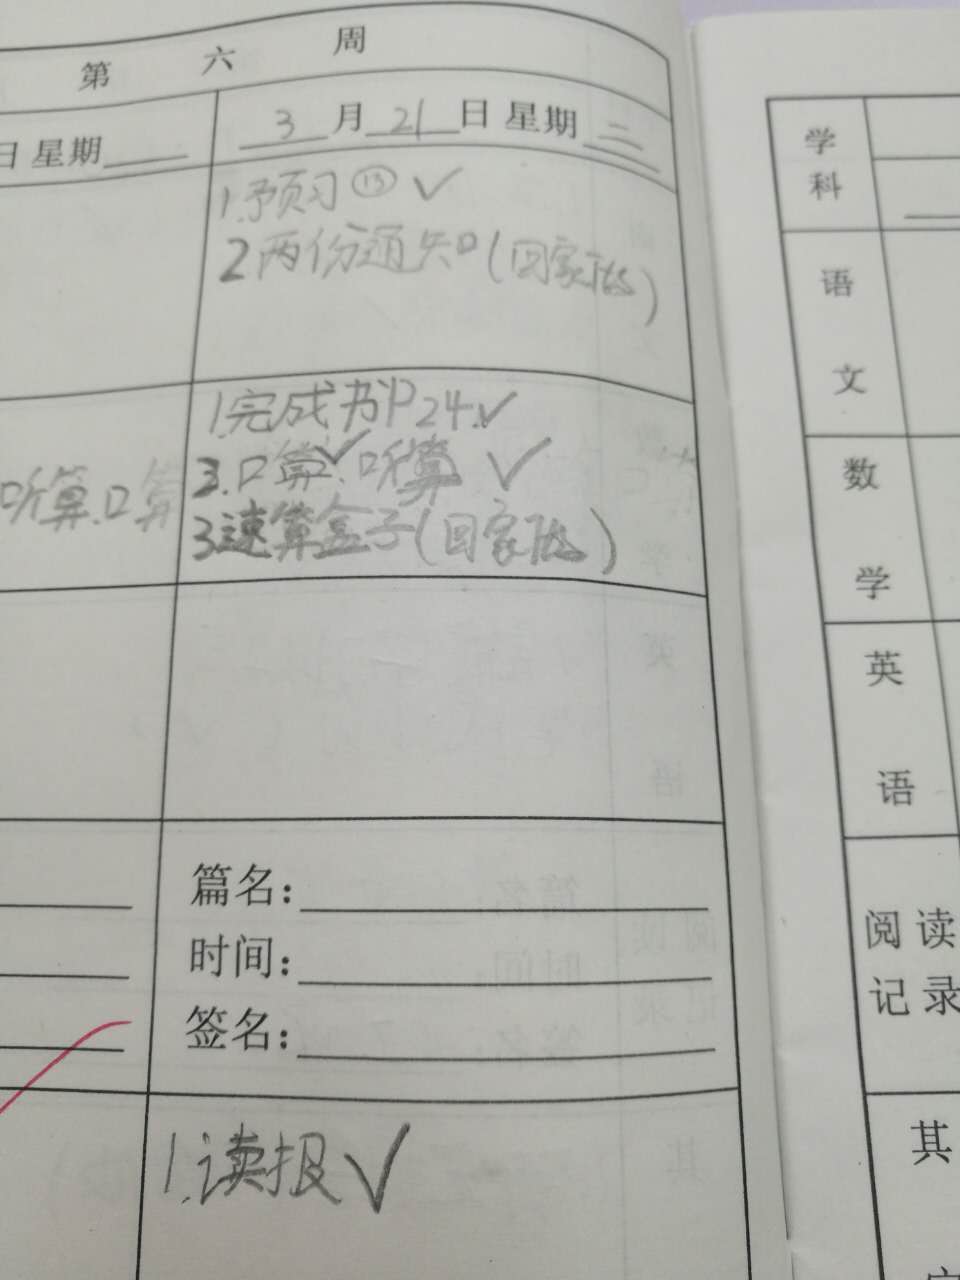 第 六 周
日 星期
3 月 21 日 星期 二
1.予预习⑬✓
2两份通知(回家做)
1.完成书P24.✓
听算.口算
3.口算✓.听算 ✓
3速算盒子(回家做)
篇名:
时间:
签名:
1.读报✓
学科
语文
数学
英语
阅读
记录
其